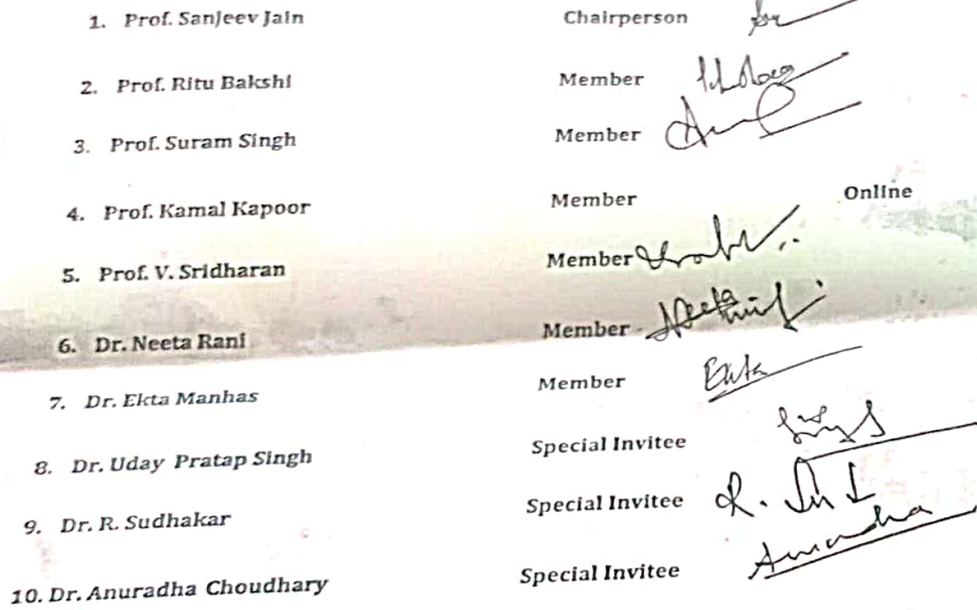 1. Prof. Sanjeev Jain Chairperson
2. Prof. Ritu Bakshi Member
3. Prof. Suram Singh Member
4. Prof. Kamal Kapoor Member Online
5. Prof. V. Sridharan Member
6. Dr. Neeta Rani Member
7. Dr. Ekta Manhas Member Ekta
8. Dr. Uday Pratap Singh Special Invitee
9. Dr. R. Sudhakar Special Invitee
10. Dr. Anuradha Choudhary Special Invitee Anuradha